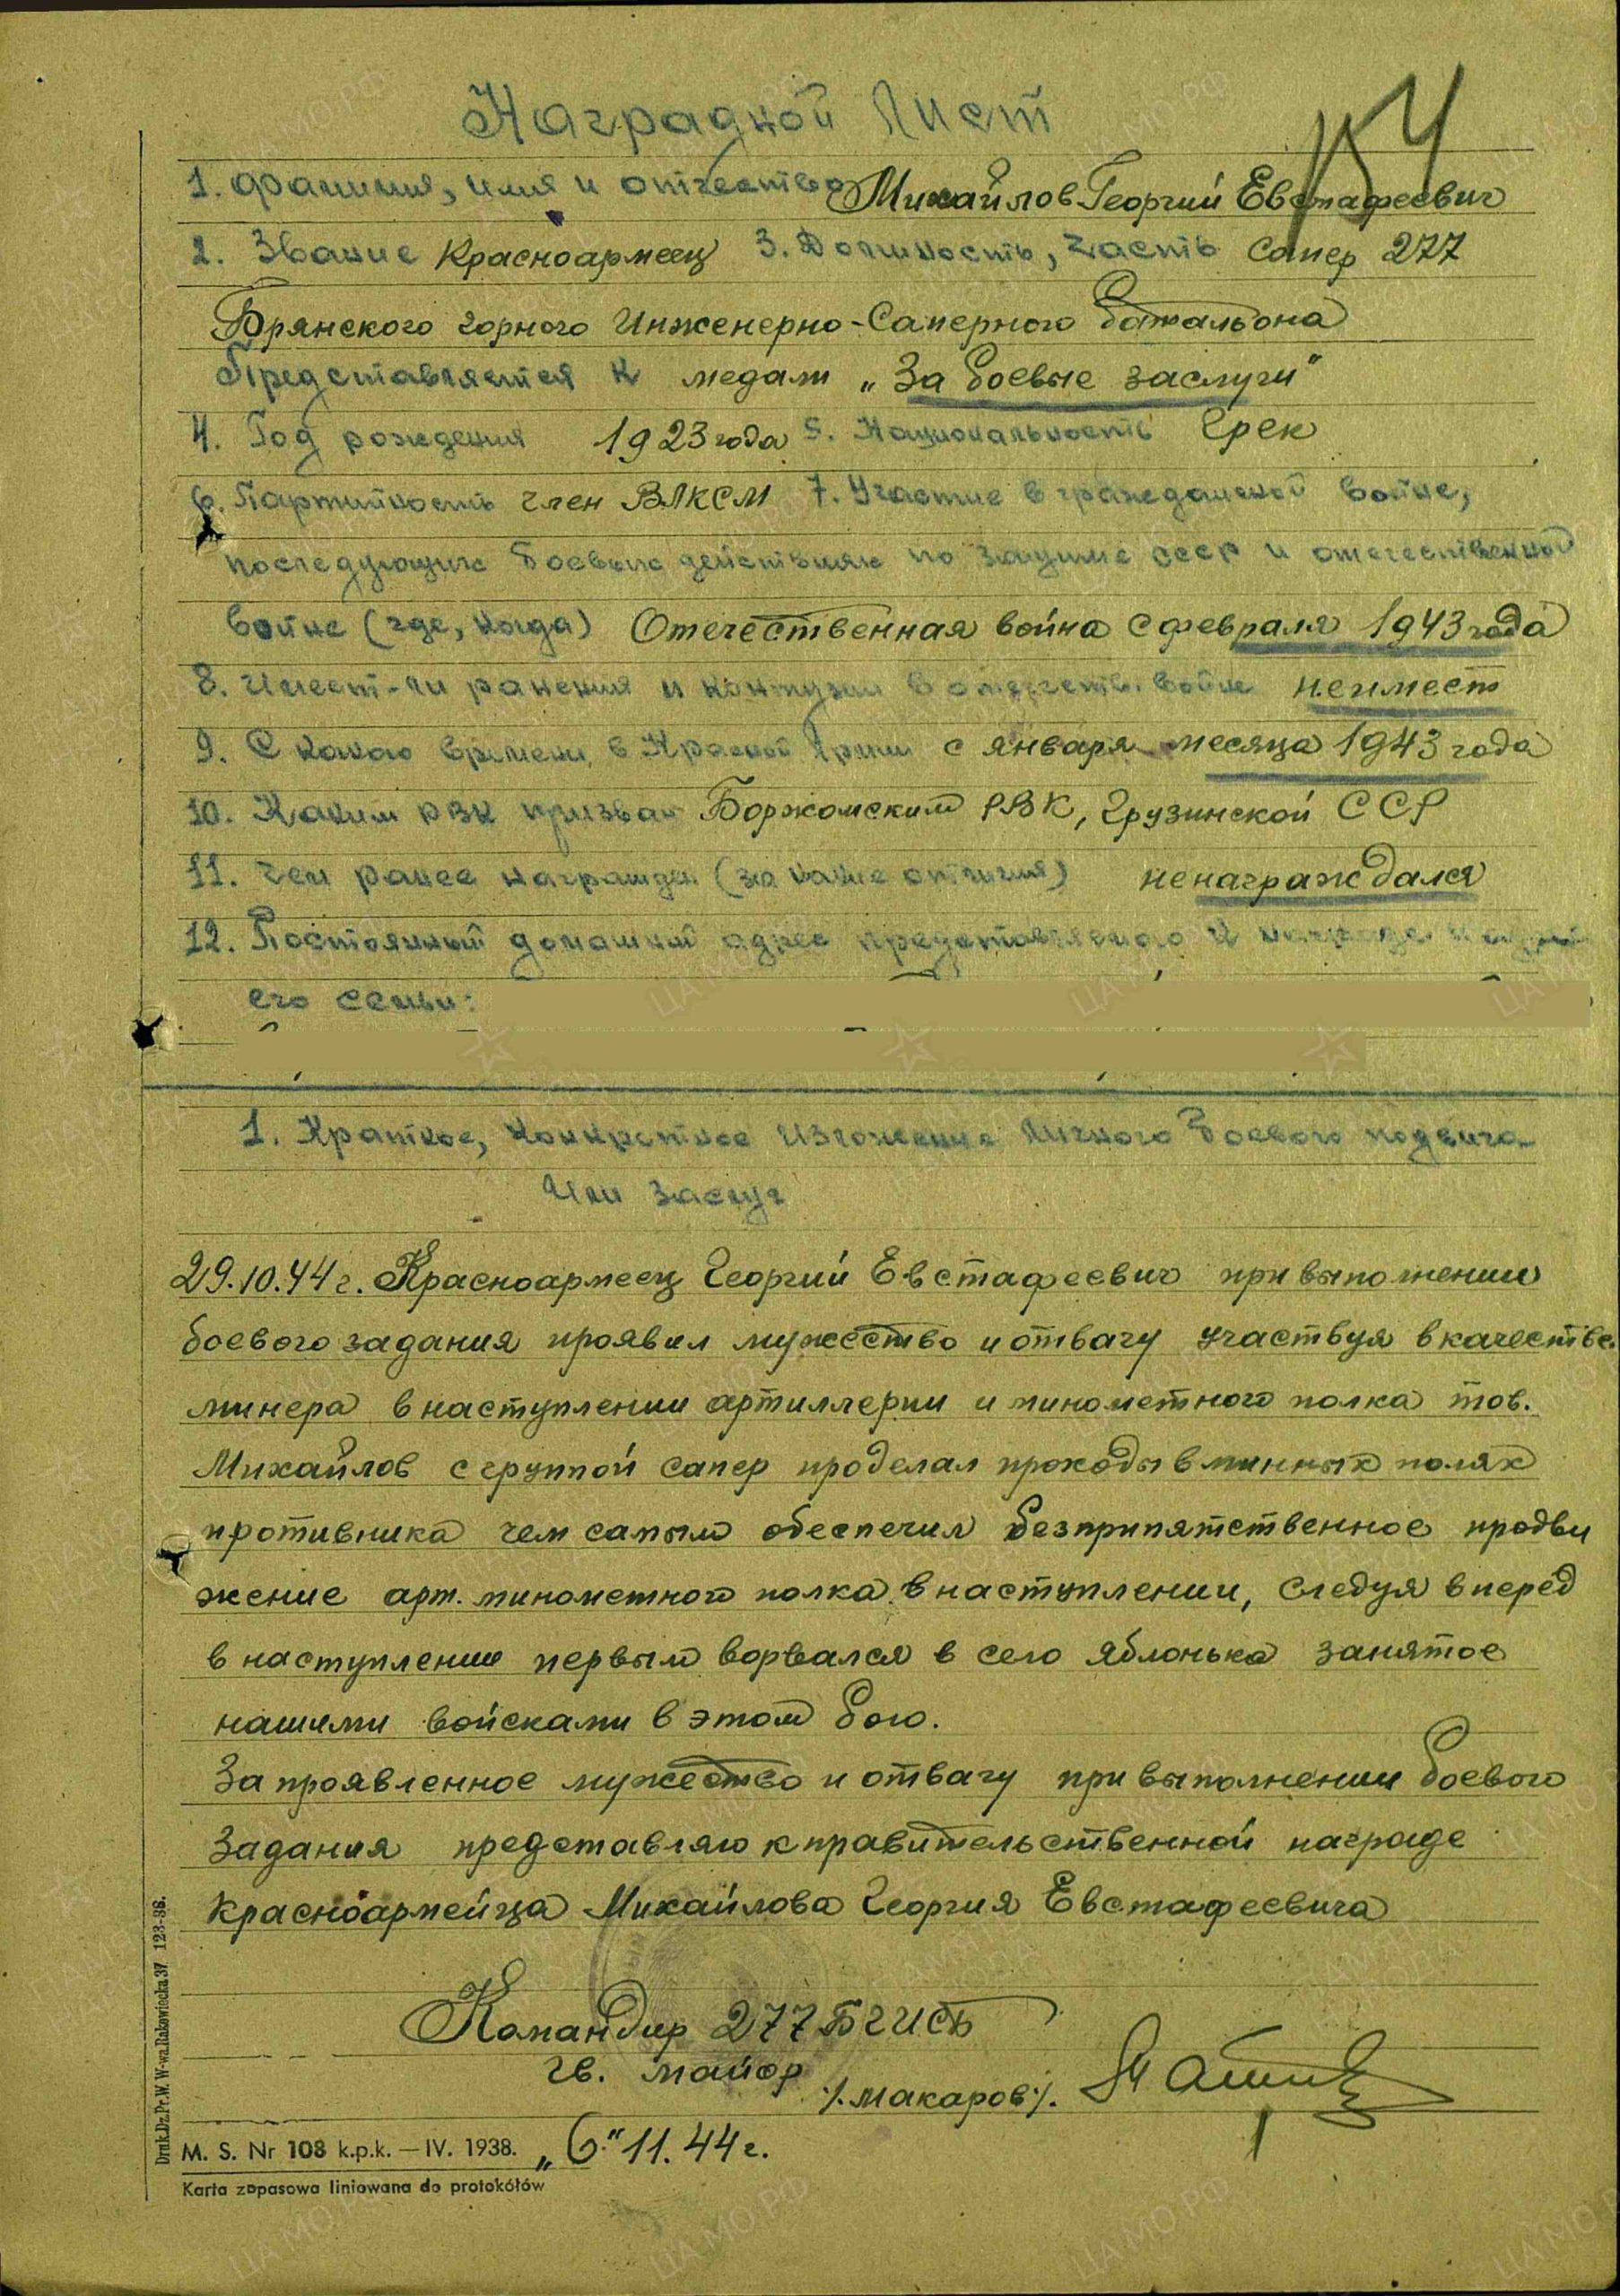 Наградной Лист
1. Фамилия, имя и отчество Михайлов Георгий Евстафеевич
2. Звание Красноармеец 3. Должность, часть Сапер 277
Брянского горного Инженерно-Саперного батальона
Представляется к медали „За боевые заслуги"
4. Год рождения 1923 года 5. Национальность Грек
6. Партийность член ВЛКСМ 7. Участие в гражданской войне,
последующих боевых действиях по защите СССР и отечественной
войне (где, когда) Отечественная война с февраля 1943 года
8. Имеет-ли ранения и контузии в отечеств. войне неимеет
9. С какого времени в Красной Армии с января месяца 1943 года
10. Каким РВК призван Боржомским РВК, Грузинской ССР
11. Чем ранее награжден (за какие отличия) ненаграждался
12. Постоянный домашний адрес представляемого к награде и
его семьи:
1. Краткое, конкретное изложение личного боевого подвига
или заслуг
29.10.44 г. Красноармеец Георгий Евстафеевич при выполнении
боевого задания проявил мужество и отвагу участвуя в качестве
минера в наступлении артиллерии и минометного полка тов.
Михайлов с группой сапер проделал проходы в минных полях
противника чем самым обеспечил безприпятственное продви
жение арт. минометного полка в наступлении, следуя вперед
в наступлении первым ворвался в село Яблонька занятое
нашими войсками в этом бою.
За проявленное мужество и отвагу при выполнении боевого
задания представляю к правительственной награде
красноармейца Михайлова Георгия Евстафеевича
Командир 277 БГИСБ
гв. майор
/.Макаров/.
„6" 11.44 г.
M. S. Nr 108 k.p.k. — IV. 1938.
Karta zapasowa liniowana do protokółów
Druk.Dz.Pr.W. W-wa.Rakowiecka 37 123-38.
ЦА МО РФ